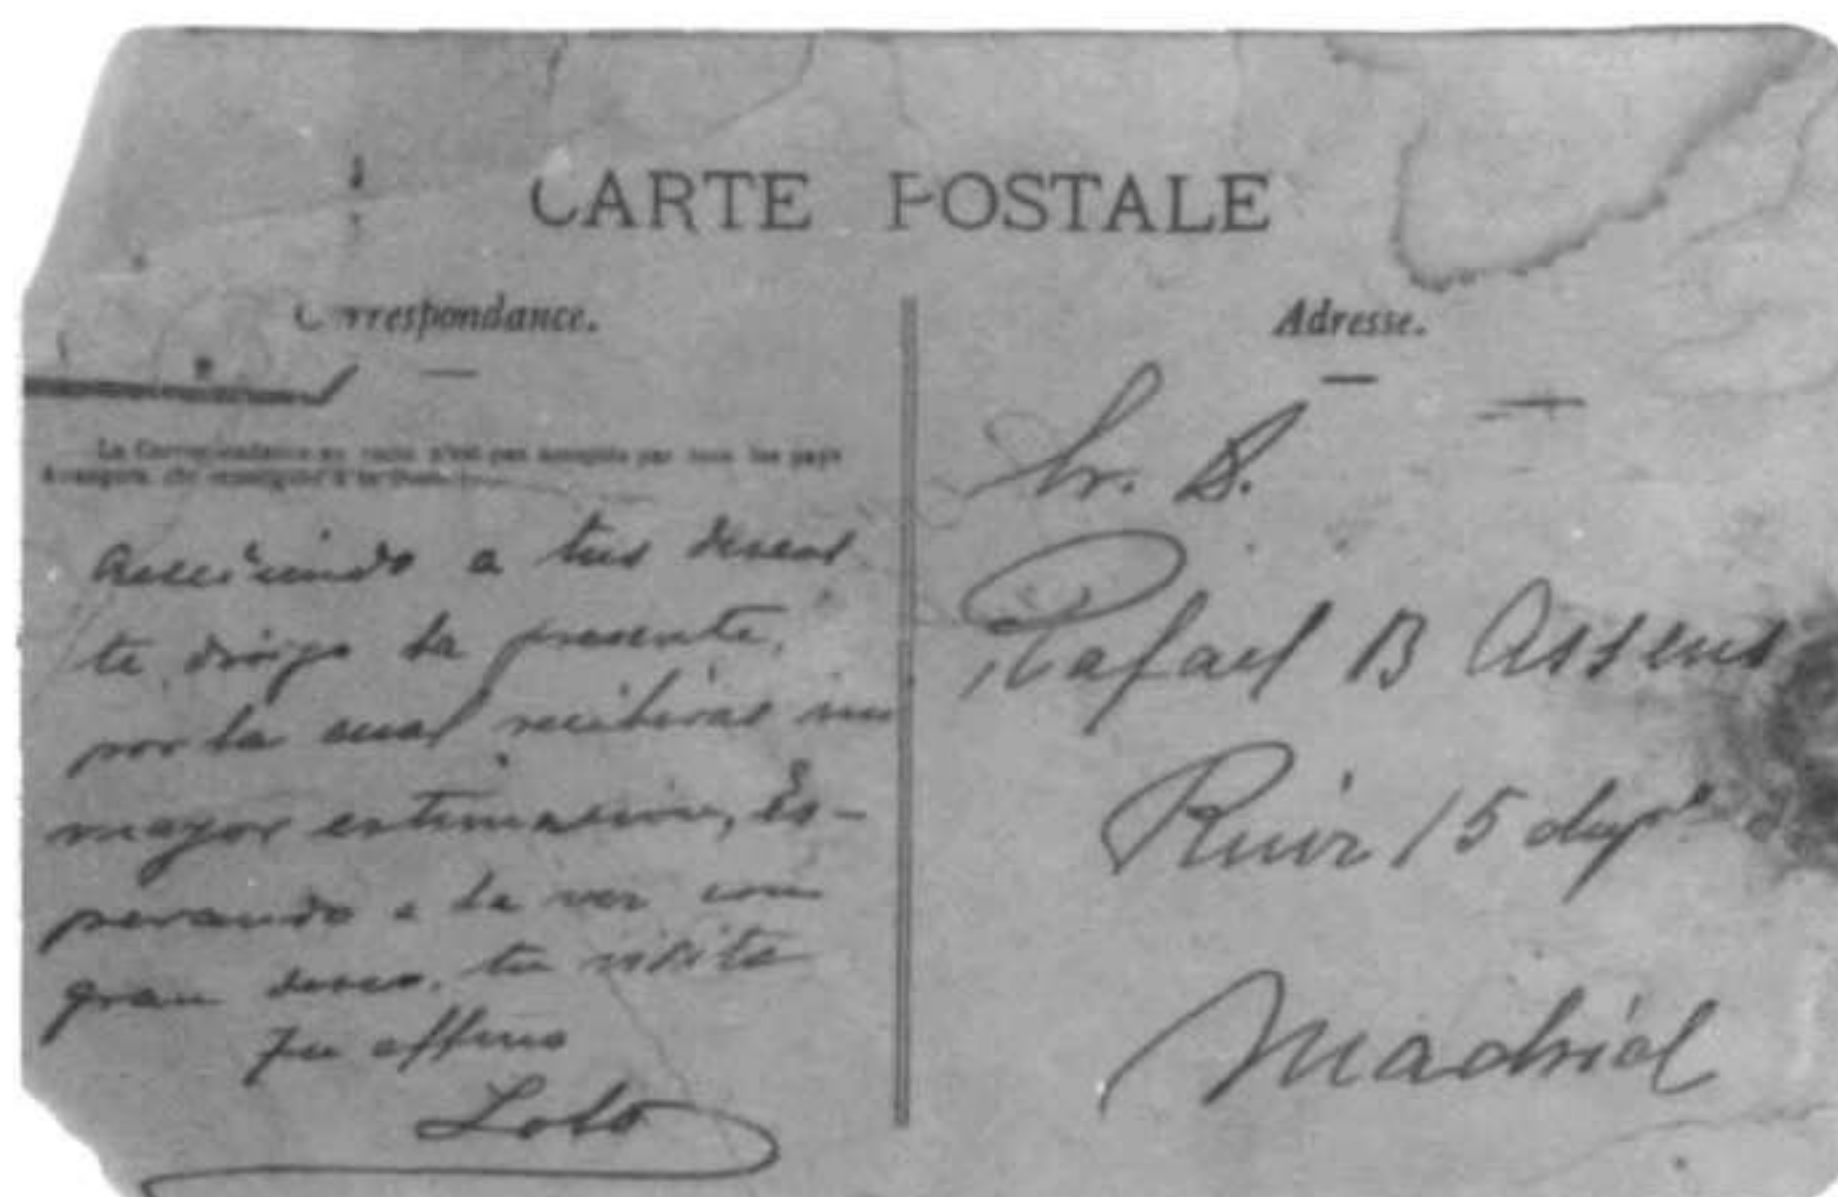 CARTE POSTALE
Correspondance.
La Correspondance au recto n'est pas acceptée par tous les pays
Accediendo a tus deseos
te dirijo la presente,
por la cual recibiras mi
mayor estimación, Es-
perando a la vez con
gran deseo, tu visita
Tu affmo
Lolo
Adresse.
Sr. D.
Rafael B Assens
Ruiz 15 dupº
Madrid